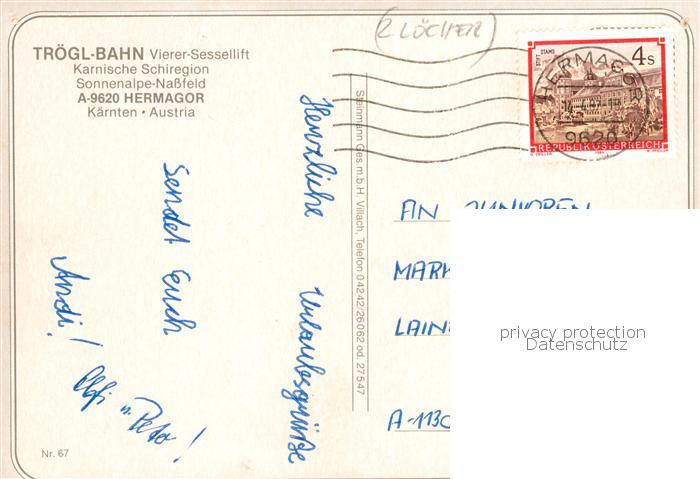 (2 LÖCHER)
TRÖGL-BAHN Vierer-Sessellift
Karnische Schiregion
Sonnenalpe-Naßfeld
A-9620 HERMAGOR
Kärnten · Austria
4 S
STIFT STAMS
REPUBLIK ÖSTERREICH
HERMAGOR
9620
Steinmann Ges.m.b.H. Villach, Telefon 04242/26062 od. 27547
Herzliche Urlaubsgrüße
sendet Euch
Andi!
u. Peter!
AN JUNIOREN
MARK
LAIN
A-1130
privacy protection
Datenschutz
Nr. 67